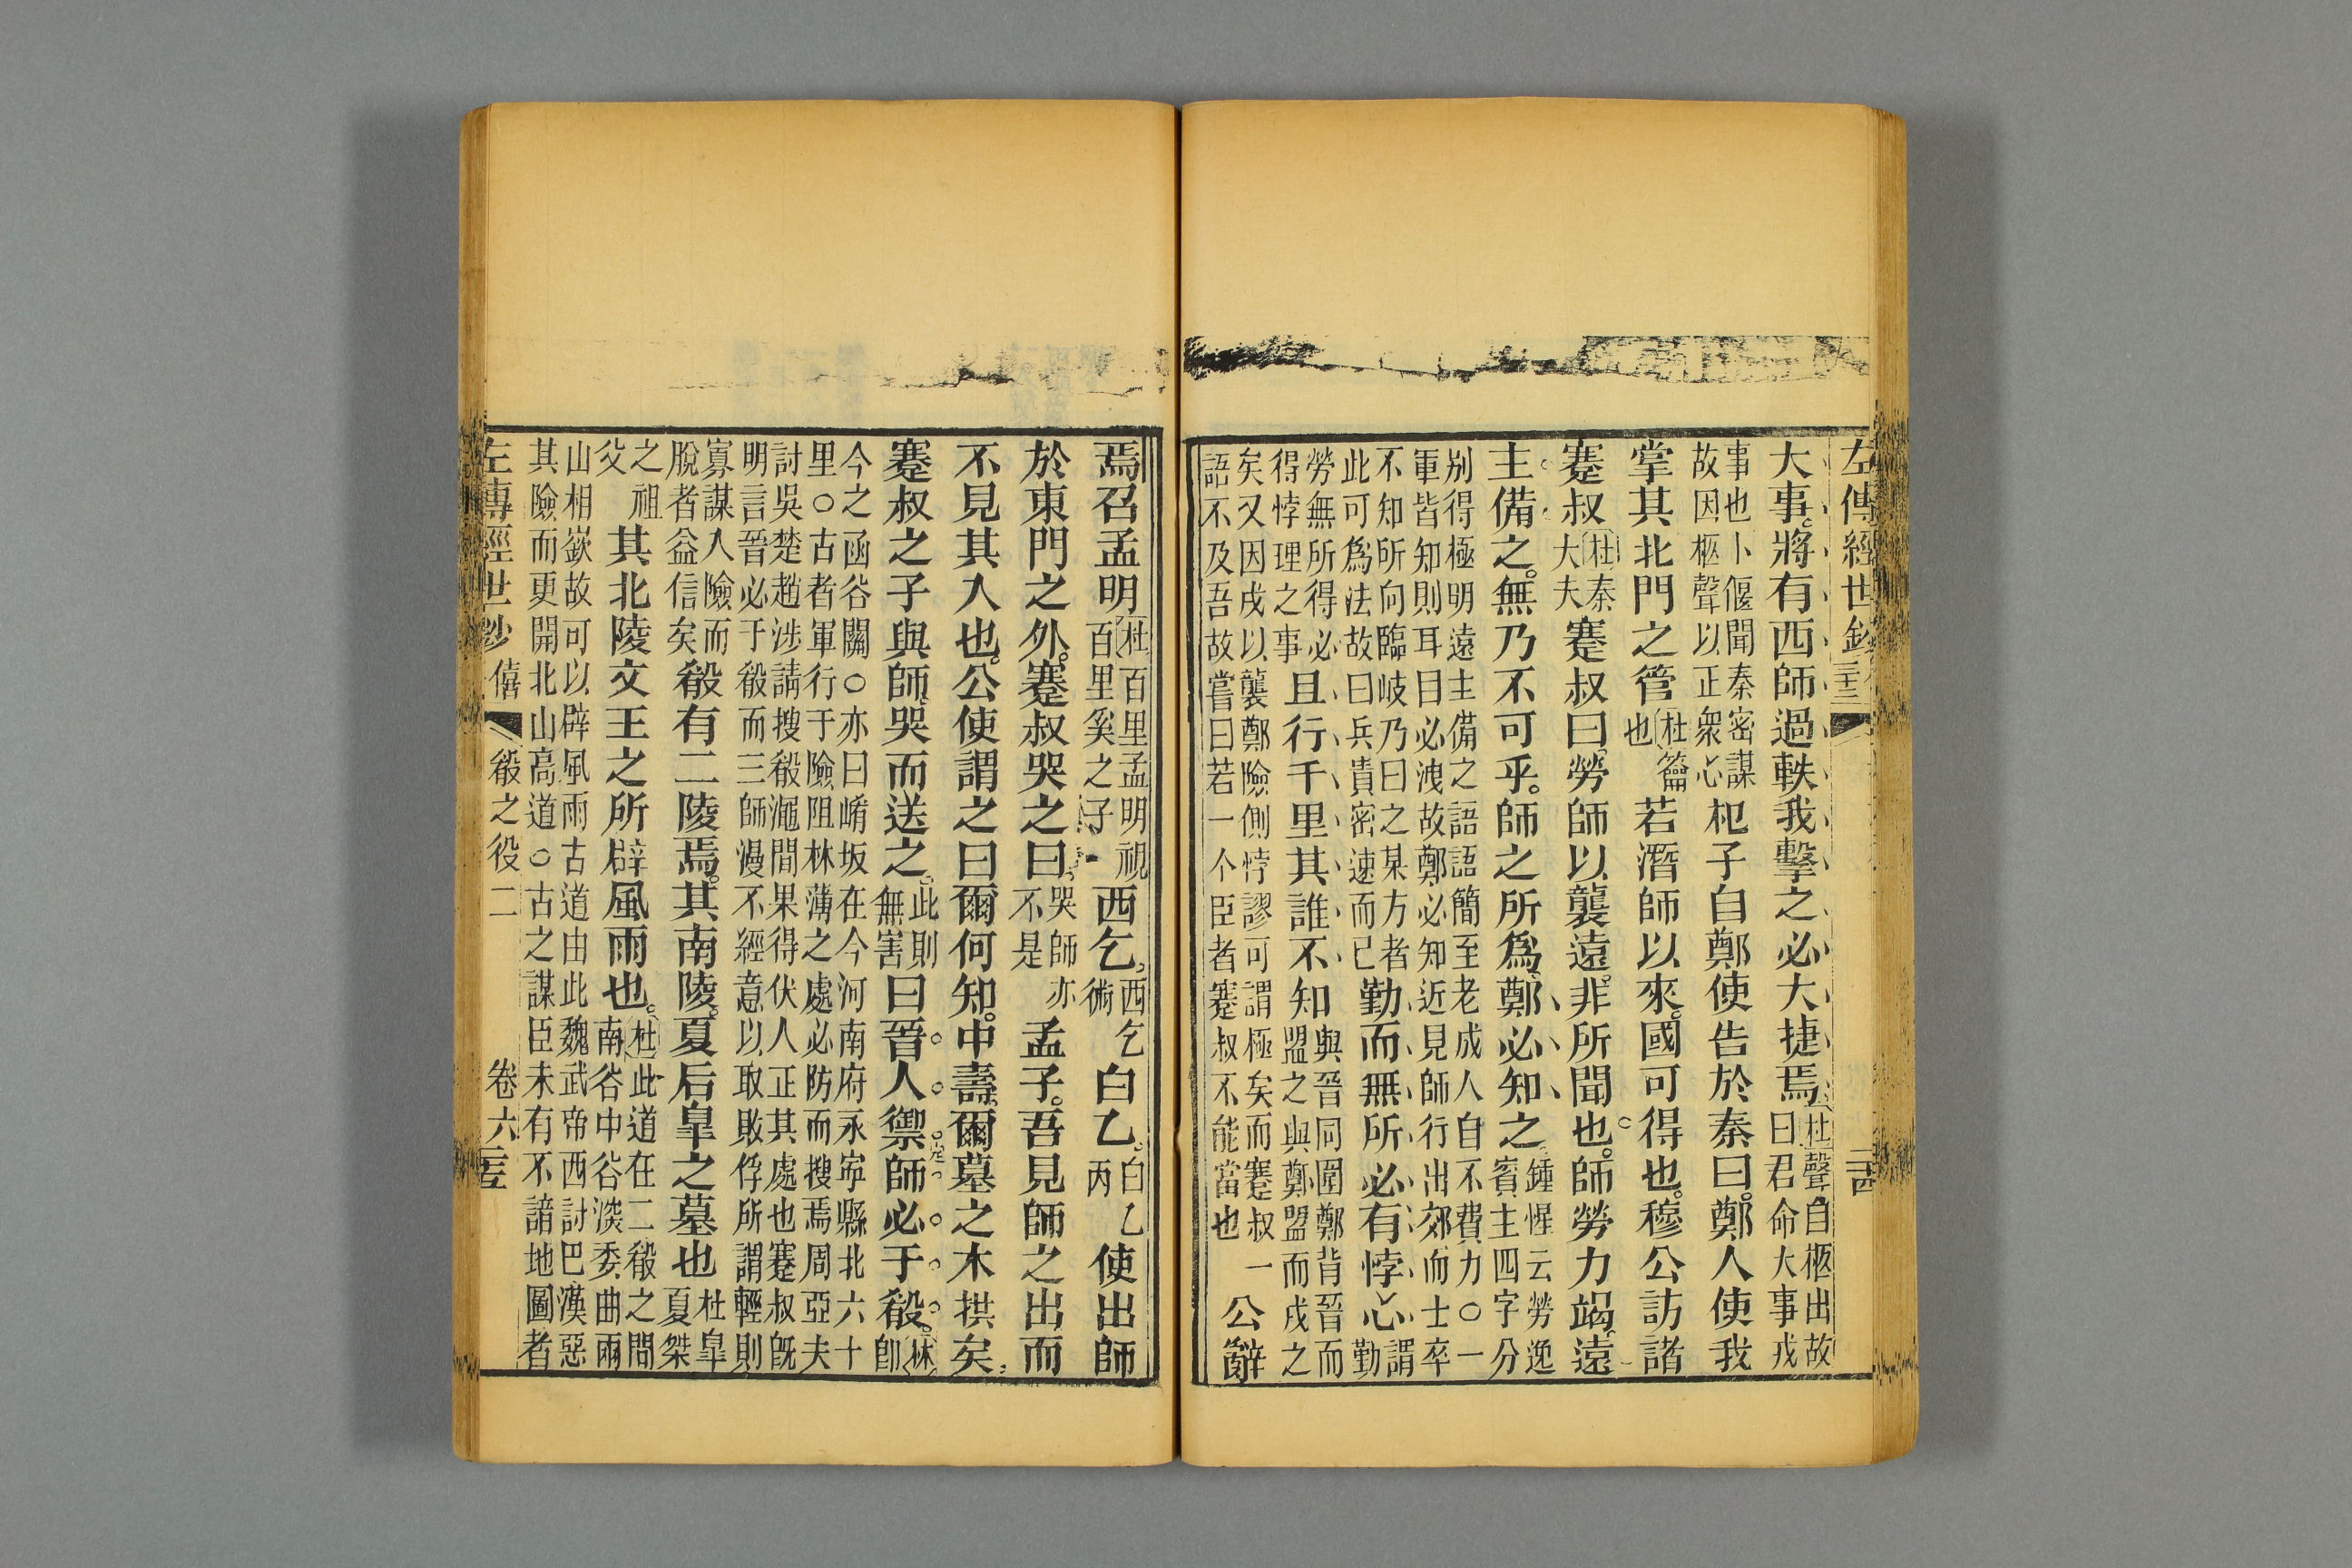 左傳經世鈔
二十四
大事將有西師過軼我擊之必大捷焉杜聲自柩出故曰君命大事戎
事也卜偃聞秦密謀故因柩聲以正衆心杞子自鄭使告於秦曰鄭人使我
掌其北門之管杜籥也若潛師以來國可得也穆公訪諸
蹇叔杜秦大夫蹇叔曰勞師以襲遠非所聞也師勞力竭遠
主備之無乃不可乎師之所爲鄭必知之鍾惺云勞逸賓主四字分
别得極明遠主備之語語簡至老成人自不費力○一
軍皆知則耳目必洩故鄭必知近見師行出郊而士卒
不知所向臨岐乃曰之某方者此可爲法故曰兵貴密速而已勤而無所必有悖心謂勤
勞無所得必得悖理之事且行千里其誰不知與晉同圍鄭背晉而盟之與鄭盟而戍之
矣又因戍以襲鄭險側悖謬可謂極矣而蹇叔一語不及吾故嘗曰若一个臣者蹇叔不能當也公辭
焉召孟明杜百里孟明視百里奚之子西乞西乞術白乙白乙丙使出師
於東門之外蹇叔哭之曰哭師亦不是孟子吾見師之出而
不見其入也公使謂之曰爾何知中壽爾墓之木拱矣
蹇叔之子與師哭而送之此則無害曰晉人禦師必于殽林卽
今之函谷關○亦曰崤坂在今河南府永寧縣北六十
里○古者軍行于險阻林薄之處必防而搜焉周亞夫
討吳楚趙涉請搜殽澠間果得伏人正其處也蹇叔旣
明言晉必于殽而三師漫不經意以取敗俘所謂輕則
寡謀入險而脫者益信矣殽有二陵焉其南陵夏后皐之墓也杜皐夏桀
之祖父其北陵文王之所辟風雨也杜此道在二殽之間南谷中谷深委曲兩
山相嶔故可以辟風雨古道由此魏武帝西討巴漢惡
其險而更開北山高道○古之謀臣未有不諳地圖者
左傳經世鈔 僖 殽之役二 卷六